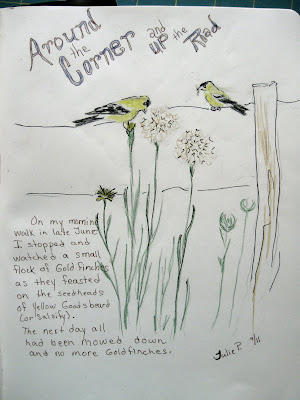 Around
the
Corner and
up the
Road
On my morning
walk in late June
I stopped and
watched a small
flock of Gold finches
as they feasted
on the seedheads
of Yellow Goatsbeard
(or Salsify).
The next day all
had been mowed down
and no more Goldfinches.
Julie P. 9/11